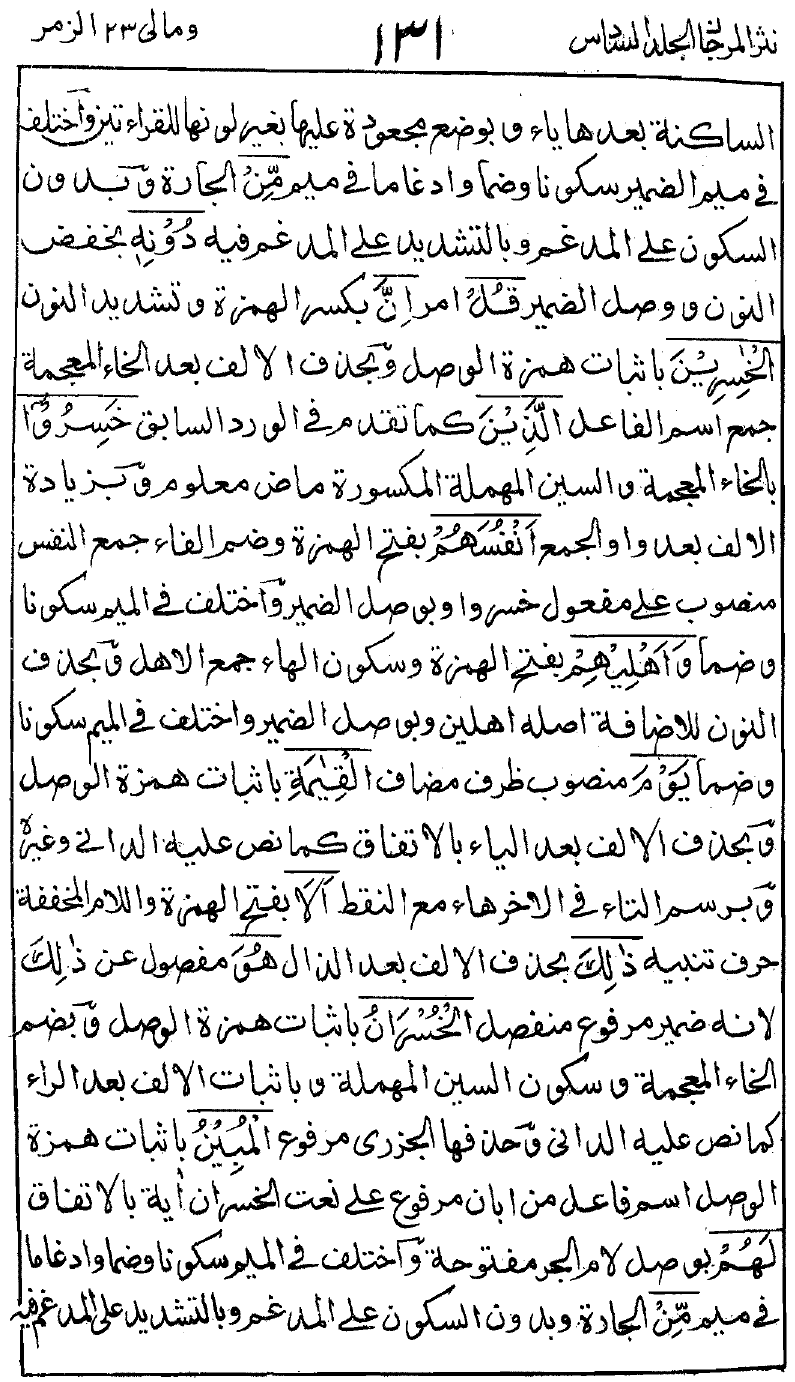 نثر المرجان الجلد السادس ١٣١ ومالى ٢٣ الزمر
الساكنة بعدها ياء وبوضع مجعودة عليها بغير لونها للقراءتين واختلف
فى ميم الضمير سكونا وضما وادغاما فى ميم مِّنْ الجارة وبدون
السكون على المدغم وبالتشديد على المدغم فيه دُوْنِهٖ بخفض
النون ووصل الضمير قُلْ امر اِنَّ بكسر الهمزة وتشديد النون
الْخٰسِرِيْنَ باثبات همزة الوصل وبحذف الالف بعد الخاء المعجمة
جمع اسم الفاعل الَّذِيْنَ كما تقدم فى الورد السابق خَسِرُوْٓا
بالخاء المعجمة والسين المهملة المكسورة ماض معلوم وبزيادة
الالف بعد واو الجمع اَنْفُسَهُمْ بفتح الهمزة وضم الفاء جمع النفس
منصوب على مفعول خسروا وبوصل الضمير واختلف فى الميم سكونا
وضما وَاَهْلِيْهِمْ بفتح الهمزة وسكون الهاء جمع الاهل وبحذف
النون للاضافة اصله اهلين وبوصل الضمير واختلف فى الميم سكونا
وضما يَوْمَ منصوب ظرف مضاف الْقِيٰمَةِ باثبات همزة الوصل
وبحذف الالف بعد الياء بالاتفاق كما نص عليه الدانى وغيره
وبرسم التاء فى الاخر هاء مع النقط اَلَا بفتح الهمزة واللام المخففة
حرف تنبيه ذٰلِكَ بحذف الالف بعد الذال هُوَ مفصول عن ذٰلِكَ
لانه ضمير مرفوع منفصل الْخُسْرَانُ باثبات همزة الوصل وبضم
الخاء المعجمة وسكون السين المهملة وباثبات الالف بعد الراء
كما نص عليه الدانى وحذفها الجزرى مرفوع الْمُبِيْنُ باثبات همزة
الوصل اسم فاعل من ابان مرفوع على نعت الخسران أية بالاتفاق
لَهُمْ بوصل لام الجر مفتوحة واختلف فى الميم سكونا وضما وادغاما
فى ميم مِّنْ الجادة وبدون السكون على المدغم وبالتشديد على المدغم فيه